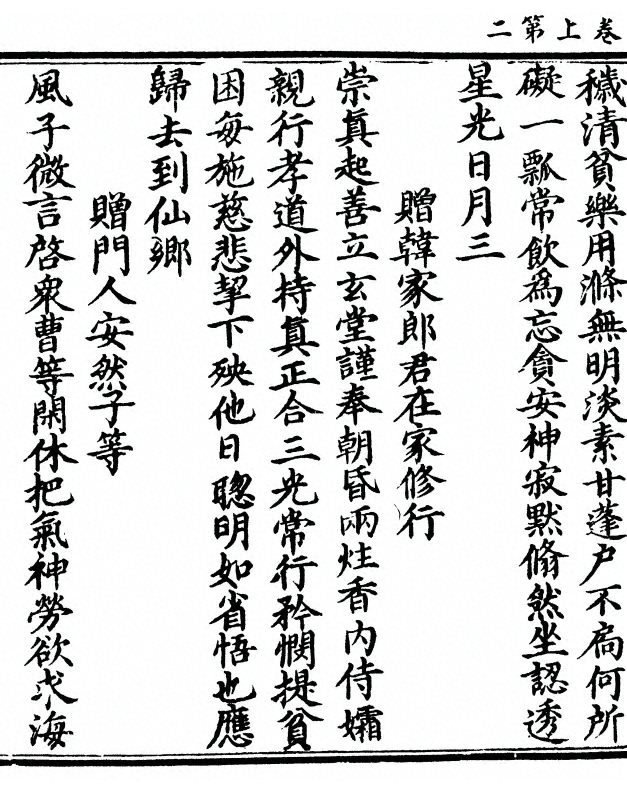 卷上第二
穢清貧樂用滌無明淡素甘蓬戶不扃何所
礙一瓢常飲為忘貪安神寂默翛然坐認透
星光日月三
贈韓家郎君在家修行
崇真起善立玄堂謹奉朝昏兩炷香內侍孀
親行孝道外持真正合三光常行矜憫提貧
困每施慈悲挈下殃他日聰明如省悟也應
歸去到仙鄉
贈門人安然子等
風子微言啓衆曹等閑休把氣神勞欲求海